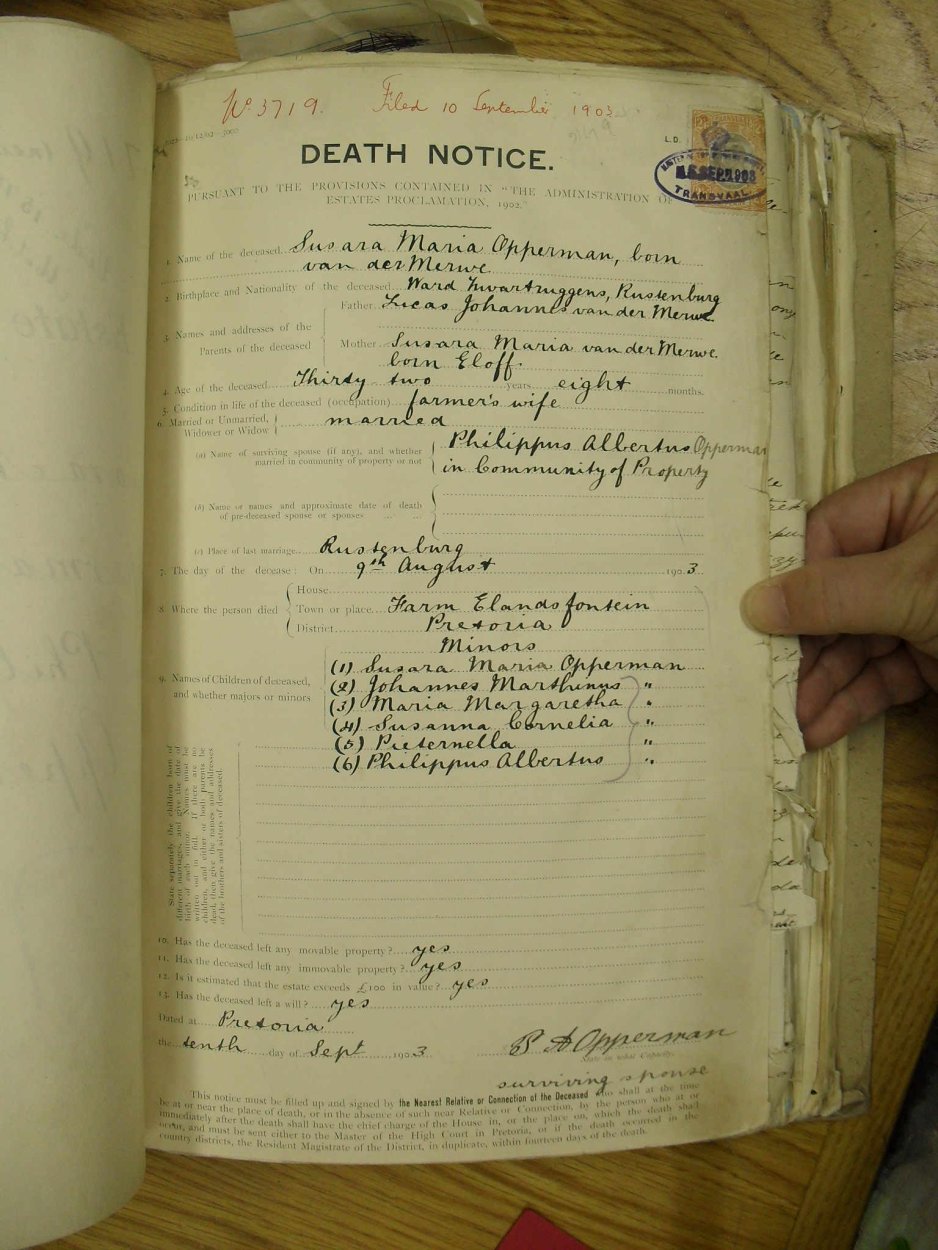 No 3719. Filed 10 September 1903
L.D.
DEATH NOTICE.
TRANSVAAL
PURSUANT TO THE PROVISIONS CONTAINED IN "THE ADMINISTRATION OF
ESTATES PROCLAMATION, 1902."
1. Name of the deceased Susara Maria Opperman, born
van der Merwe
2. Birthplace and Nationality of the deceased Ward Zwartruggens, Rustenburg
3. Names and addresses of the Parents of the deceased
Father Lucas Johannes van der Merwe.
Mother Susara Maria van der Merwe.
born Eloff.
4. Age of the deceased Thirty two years eight months.
5. Condition in life of the deceased (occupation) farmer's wife
6. Married or Unmarried, Widower or Widow married
(a) Name of surviving spouse (if any), and whether married in community of property or not
Philippus Albertus Opperman
in Community of Property
(b) Name or names and approximate date of death
of pre-deceased spouse or spouses
(c) Place of last marriage Rustenburg
7. The day of the decease: On 9th August 1903
8. Where the person died
House
Town or place Farm Elandsfontein
District Pretoria
Minors
9. Names of Children of deceased,
and whether majors or minors
(1) Susara Maria Opperman
(2) Johannes Marthinus "
(3) Maria Margaretha "
(4) Susanna Cornelia "
(5) Pieternella "
(6) Philippus Albertus "
State separately the children born of
different marriages, and give the date of
birth of each minor. Names must be
written out in full. If there are no
children, and either or both parents be
dead, then give the names and addresses
of the brothers and sisters of deceased.
10. Has the deceased left any movable property? yes
11. Has the deceased left any immovable property? yes
12. Is it estimated that the estate exceeds £100 in value? yes
13. Has the deceased left a will? yes
Dated at Pretoria
the tenth day of Sept 1903
P A Opperman
State in what Capacity.
surviving spouse
This notice must be filled up and signed by the Nearest Relative or Connection of the Deceased who shall at the time
be at or near the place of death, or in the absence of such near Relative or Connection, by the person who at or
immediately after the death shall have the chief charge of the House in, or the place on, which the death shall
occur, and must be sent either to the Master of the High Court in Pretoria, or if the death occurred in the
country districts, the Resident Magistrate of the District, in duplicate, within fourteen days of the death.